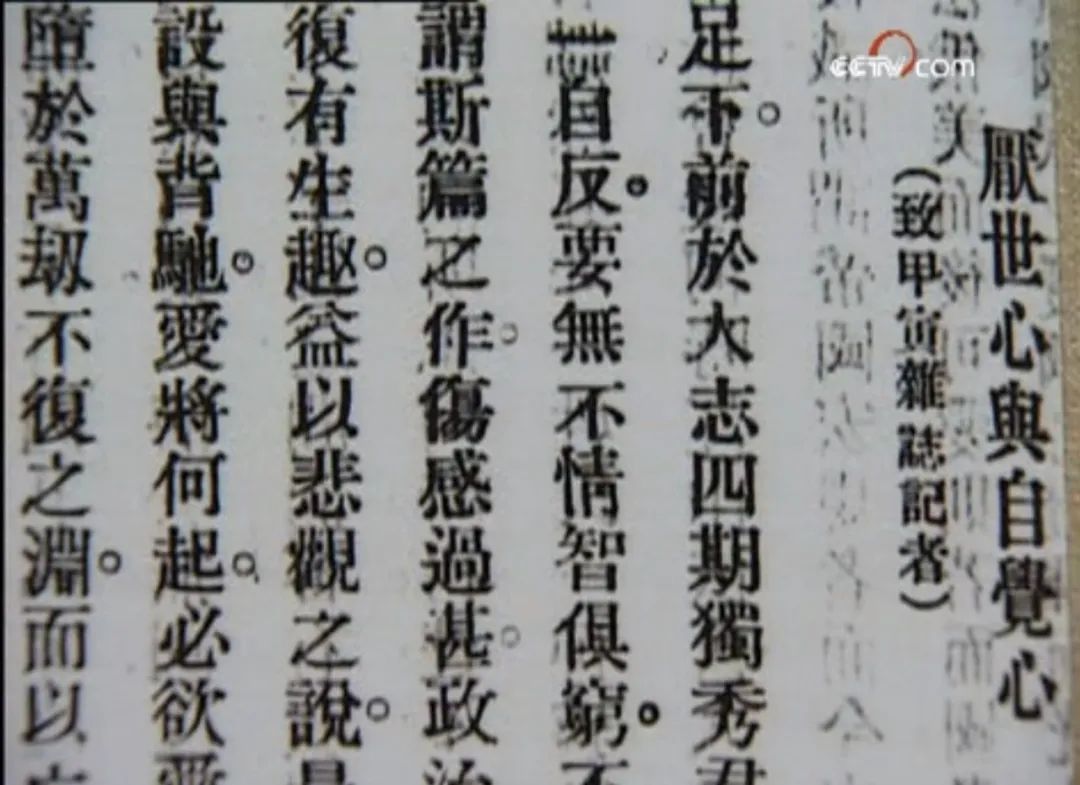 厭世心與自覺心
(致甲寅雜誌記者)
足下。前於大志四期獨秀君
自反。要無不情智俱窮。不
謂斯篇之作。傷感過甚。政治
復有生趣。益以悲觀之說。
設與背馳。愛將何起。必欲愛
墮於萬劫不復之淵。而以
CCTV com